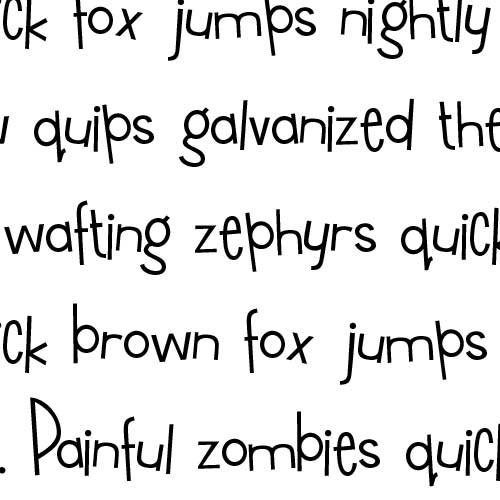 ck fox jumps nightly
quips galvanized the
wafting zephyrs quick
ck brown fox jumps
. Painful zombies quick